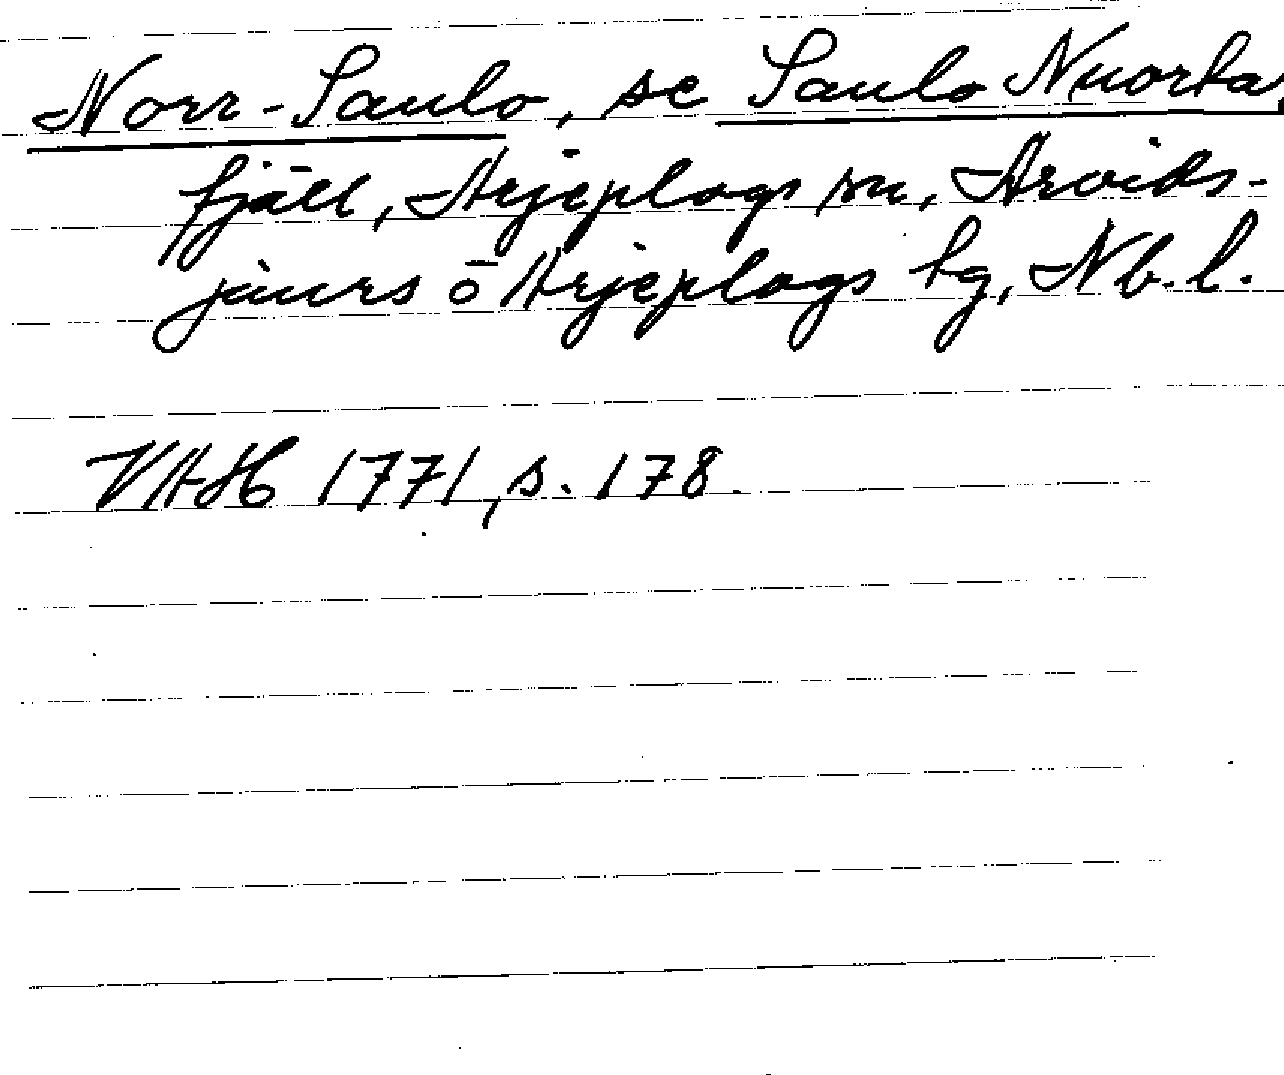 Norr-Saulo, se Saulo Nuorta,
fjäll, Arjeplogs sn, Arvids-
jaurs o Arjeplogs tg, Nb. l.
VAH 1771, s. 178.